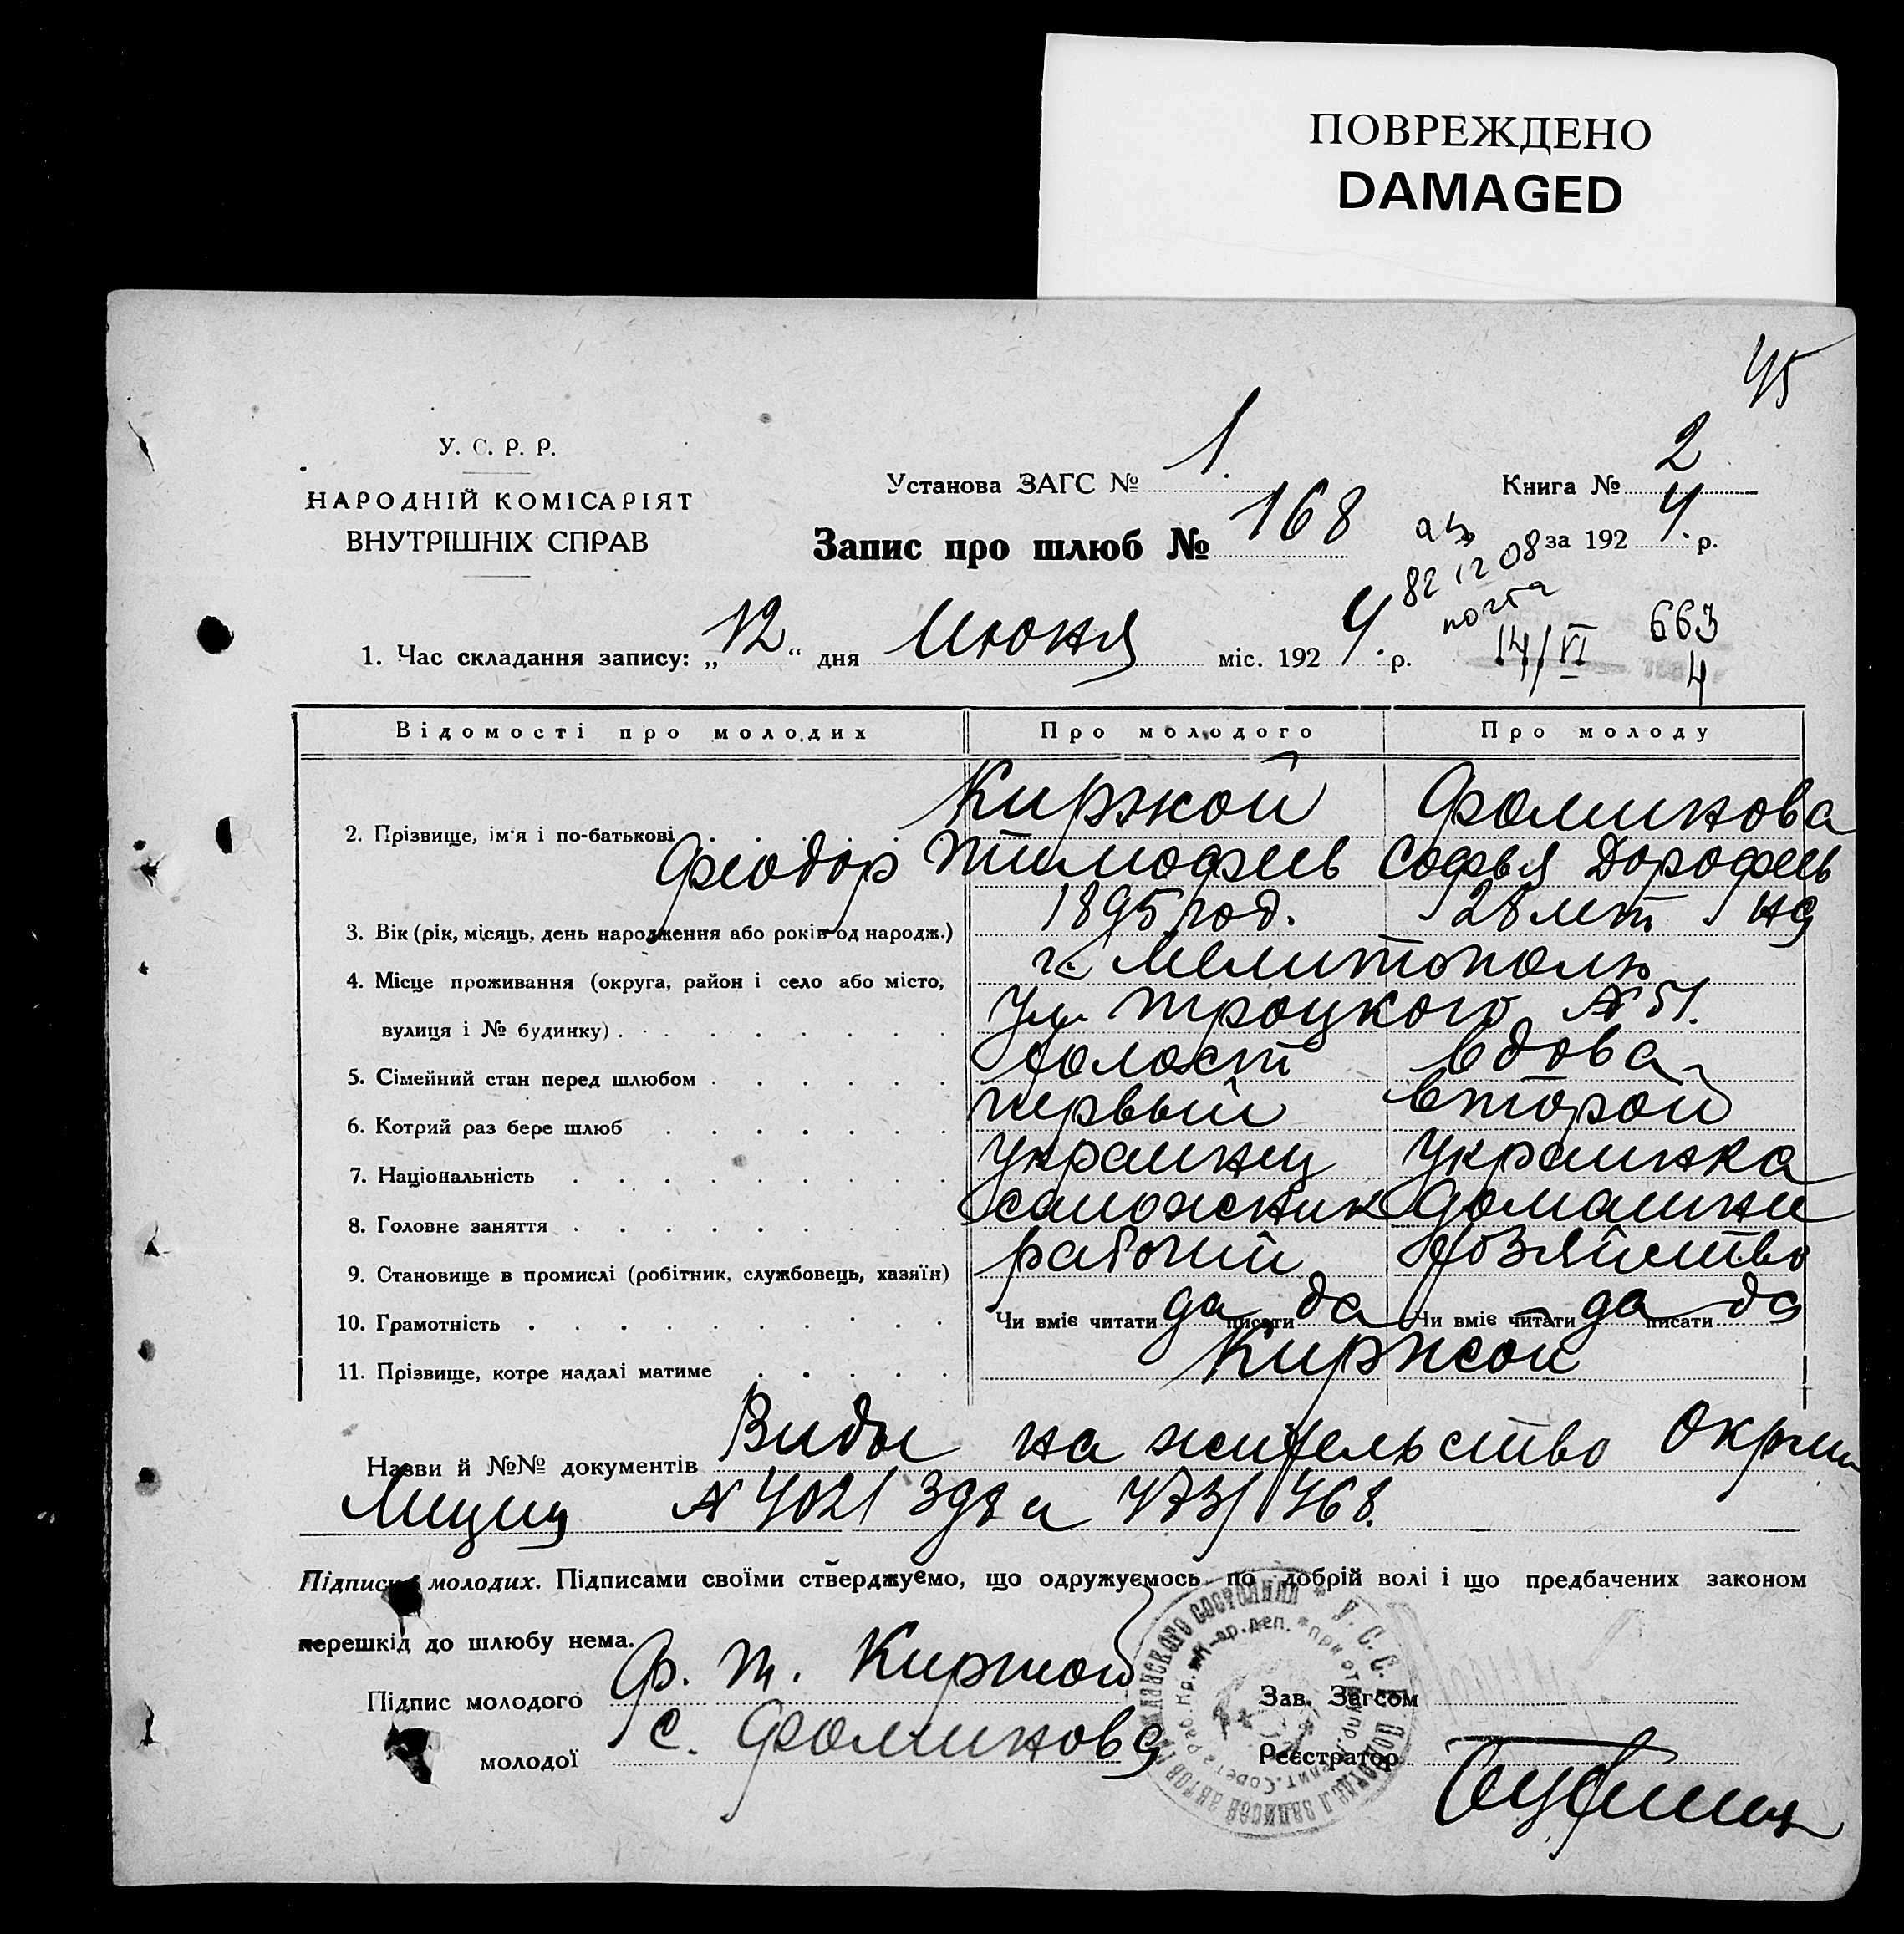 ПОВРЕЖДЕНО
DAMAGED
45
У. С. Р. Р.
НАРОДНІЙ КОМІСАРІЯТ
ВНУТРІШНІХ СПРАВ
Установа ЗАГС № 1.
Книга № 2
Запис про шлюб № 168
за 192 4. р.
82 12 08
почта
14/VI
663
4
1. Час складання запису: „12“ дня Июня міс. 192 4. р.
Відомості про молодих Про молодого Про молоду
Киржой Фоминова
2. Прізвище, ім'я і по-батькові
Феодор Тимофеев Софья Дорофеев
на
3. Вік (рік, місяць, день народження або років од народж.) 1895 год. 28 лет
4. Місце проживання (округа, район і село або місто, г. Мелитополь
вулиця і № будинку) ул. Троцкого № 51.
5. Сімейний стан перед шлюбом холост вдова
6. Котрий раз бере шлюб первый второй
7. Національність украинец украинка
8. Головне заняття сапожник домашнее
9. Становище в промислі (робітник, службовець, хазяїн) рабочий хозяйство
10. Грамотність Чи вміє читати да писати да Чи вміє читати да писати да
11. Прізвище, котре надалі матиме Киржой
Назви й №№ документів Виды на жительство
№ 4021 398 и 473/1468.
Підписи молодих. Підписами своїми стверджуємо, що одружуємось по добрій волі і що предбачених законом
перешкід до шлюбу нема.
Підпис молодого Ф. Т. Киржой
Зав. Загсом
молодої С. Фоминова
Реєстратор